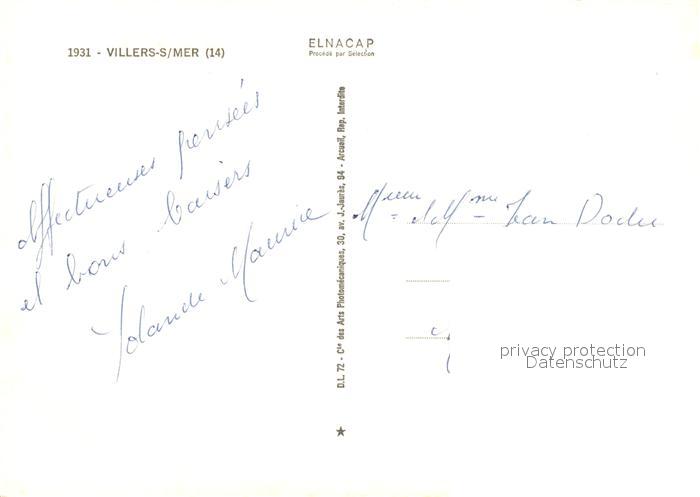 1931 - VILLERS-S/MER (14)
ELNACAP
Procédé par Sélection
affectueuses pensées
et bons baisers
Yolande Maurice
D.L. 72 - Cie des Arts Photomécaniques, 30, av. J.-Jaurès, 94 - Arcueil, Rep. Interdite
Mieur et Mme Jean
privacy protection
Datenschutz